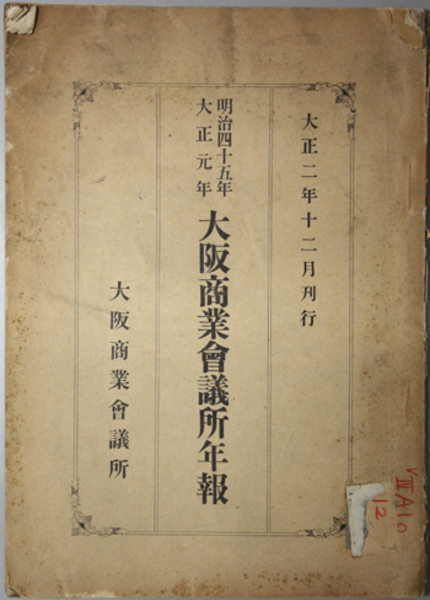 大正二年十二月刊行
明治四十五年
大正元年
大阪商業會議所年報
大阪商業會議所
ⅢA10
12